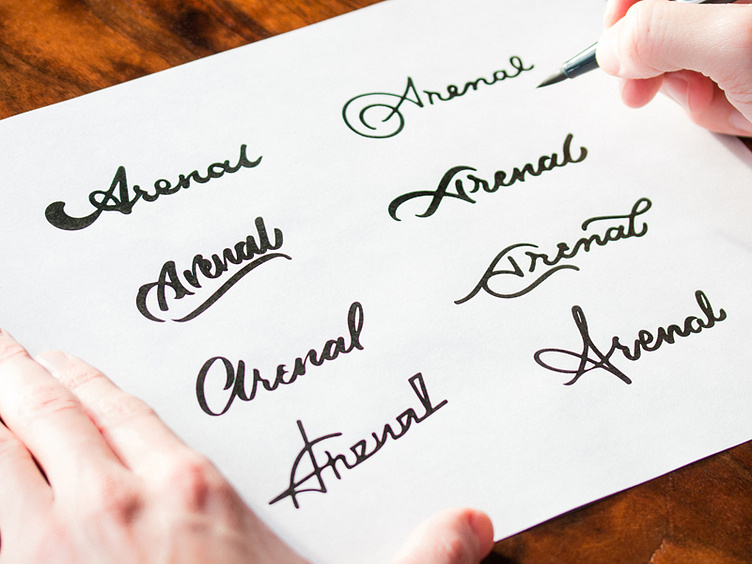 Arenal
Arenal
Arenal
Arenal
Arenal
Arenal
Arenal
Arenal